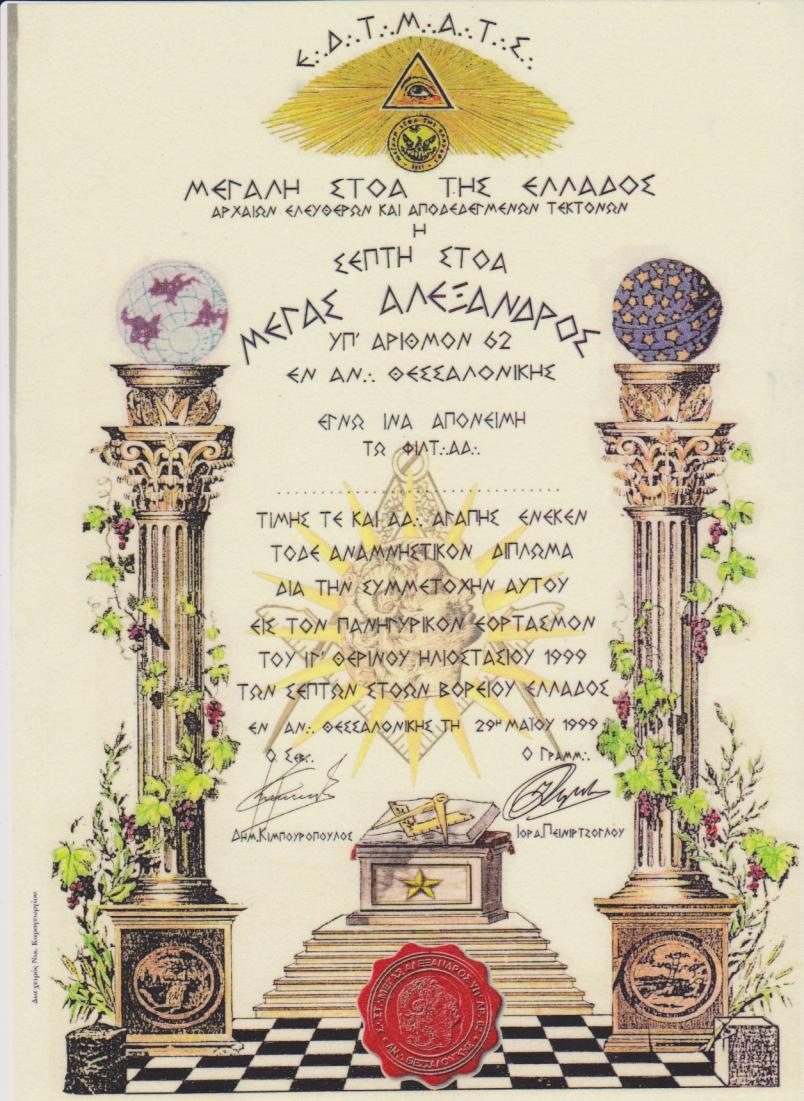 Ε∴Δ∴Τ∴Μ∴Α∴Τ∴Σ∴
ΜΕΓΑΛΗ ΣΤΟΑ ΤΗΣ ΕΛΛΑΔΟΣ
ΑΡΧΑΙΩΝ ΕΛΕΥΘΕΡΩΝ ΚΑΙ ΑΠΟΔΕΔΕΓΜΕΝΩΝ ΤΕΚΤΟΝΩΝ
Η
ΣΕΠΤΗ ΣΤΟΑ
ΜΕΓΑΣ ΑΛΕΞΑΝΔΡΟΣ
ΥΠ' ΑΡΙΘΜΟΝ 62
ΕΝ ΑΝ∴ ΘΕΣΣΑΛΟΝΙΚΗΣ
ΕΓΝΩ ΙΝΑ ΑΠΟΝΕΙΜΗ
ΤΩ ΦΙΛΤ∴ΑΔ∴
ΤΙΜΗΣ ΤΕ ΚΑΙ ΑΔ∴ ΑΓΑΠΗΣ ΕΝΕΚΕΝ
ΤΟΔΕ ΑΝΑΜΝΗΣΤΙΚΟΝ ΔΙΠΛΩΜΑ
ΔΙΑ ΤΗΝ ΣΥΜΜΕΤΟΧΗΝ ΑΥΤΟΥ
ΕΙΣ ΤΟΝ ΠΑΝΗΓΥΡΙΚΟΝ ΕΟΡΤΑΣΜΟΝ
ΤΟΥ ΙΓ' ΘΕΡΙΝΟΥ ΗΛΙΟΣΤΑΣΙΟΥ 1999
ΤΩΝ ΣΕΠΤΩΝ ΣΤΟΩΝ ΒΟΡΕΙΟΥ ΕΛΛΑΔΟΣ
ΕΝ ΑΝ∴ ΘΕΣΣΑΛΟΝΙΚΗΣ ΤΗ 29Η ΜΑΪΟΥ 1999
Ο Σεβ∴ Ο Γραμμ∴
ΔΗΜ.ΚΙΜΠΟΥΡΟΠΟΥΛΟΣ ΙΟΡΔ.ΠΕΙΝΙΡΤΖΟΓΛΟΥ
Δια χειρός Νικ. Καραγεωργίου
ΜΕΓΑΣ ΑΛΕΞΑΝΔΡΟΣ ΥΠ ΑΡ 62